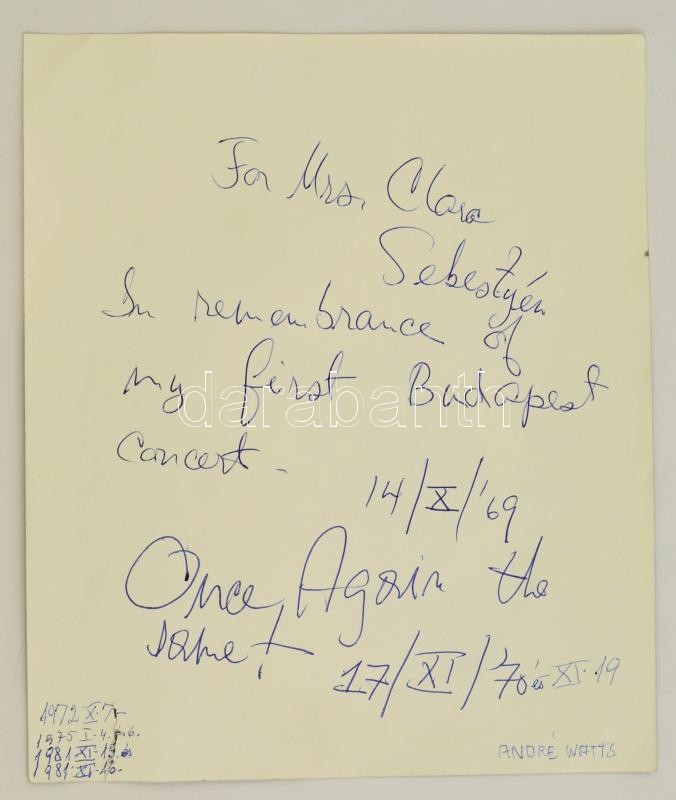 For Mrs. Clara
Sebestyén
In remembrance of
my first Budapest
concert -
14/X/'69
Once Again the
same!
17/XI/'70 és XI. 19
1972 X. 7.
1975 I. 4. 5. 6.
1981 XI. 15. és
1981 XI. 16.
ANDRÉ WATTS
darabanth